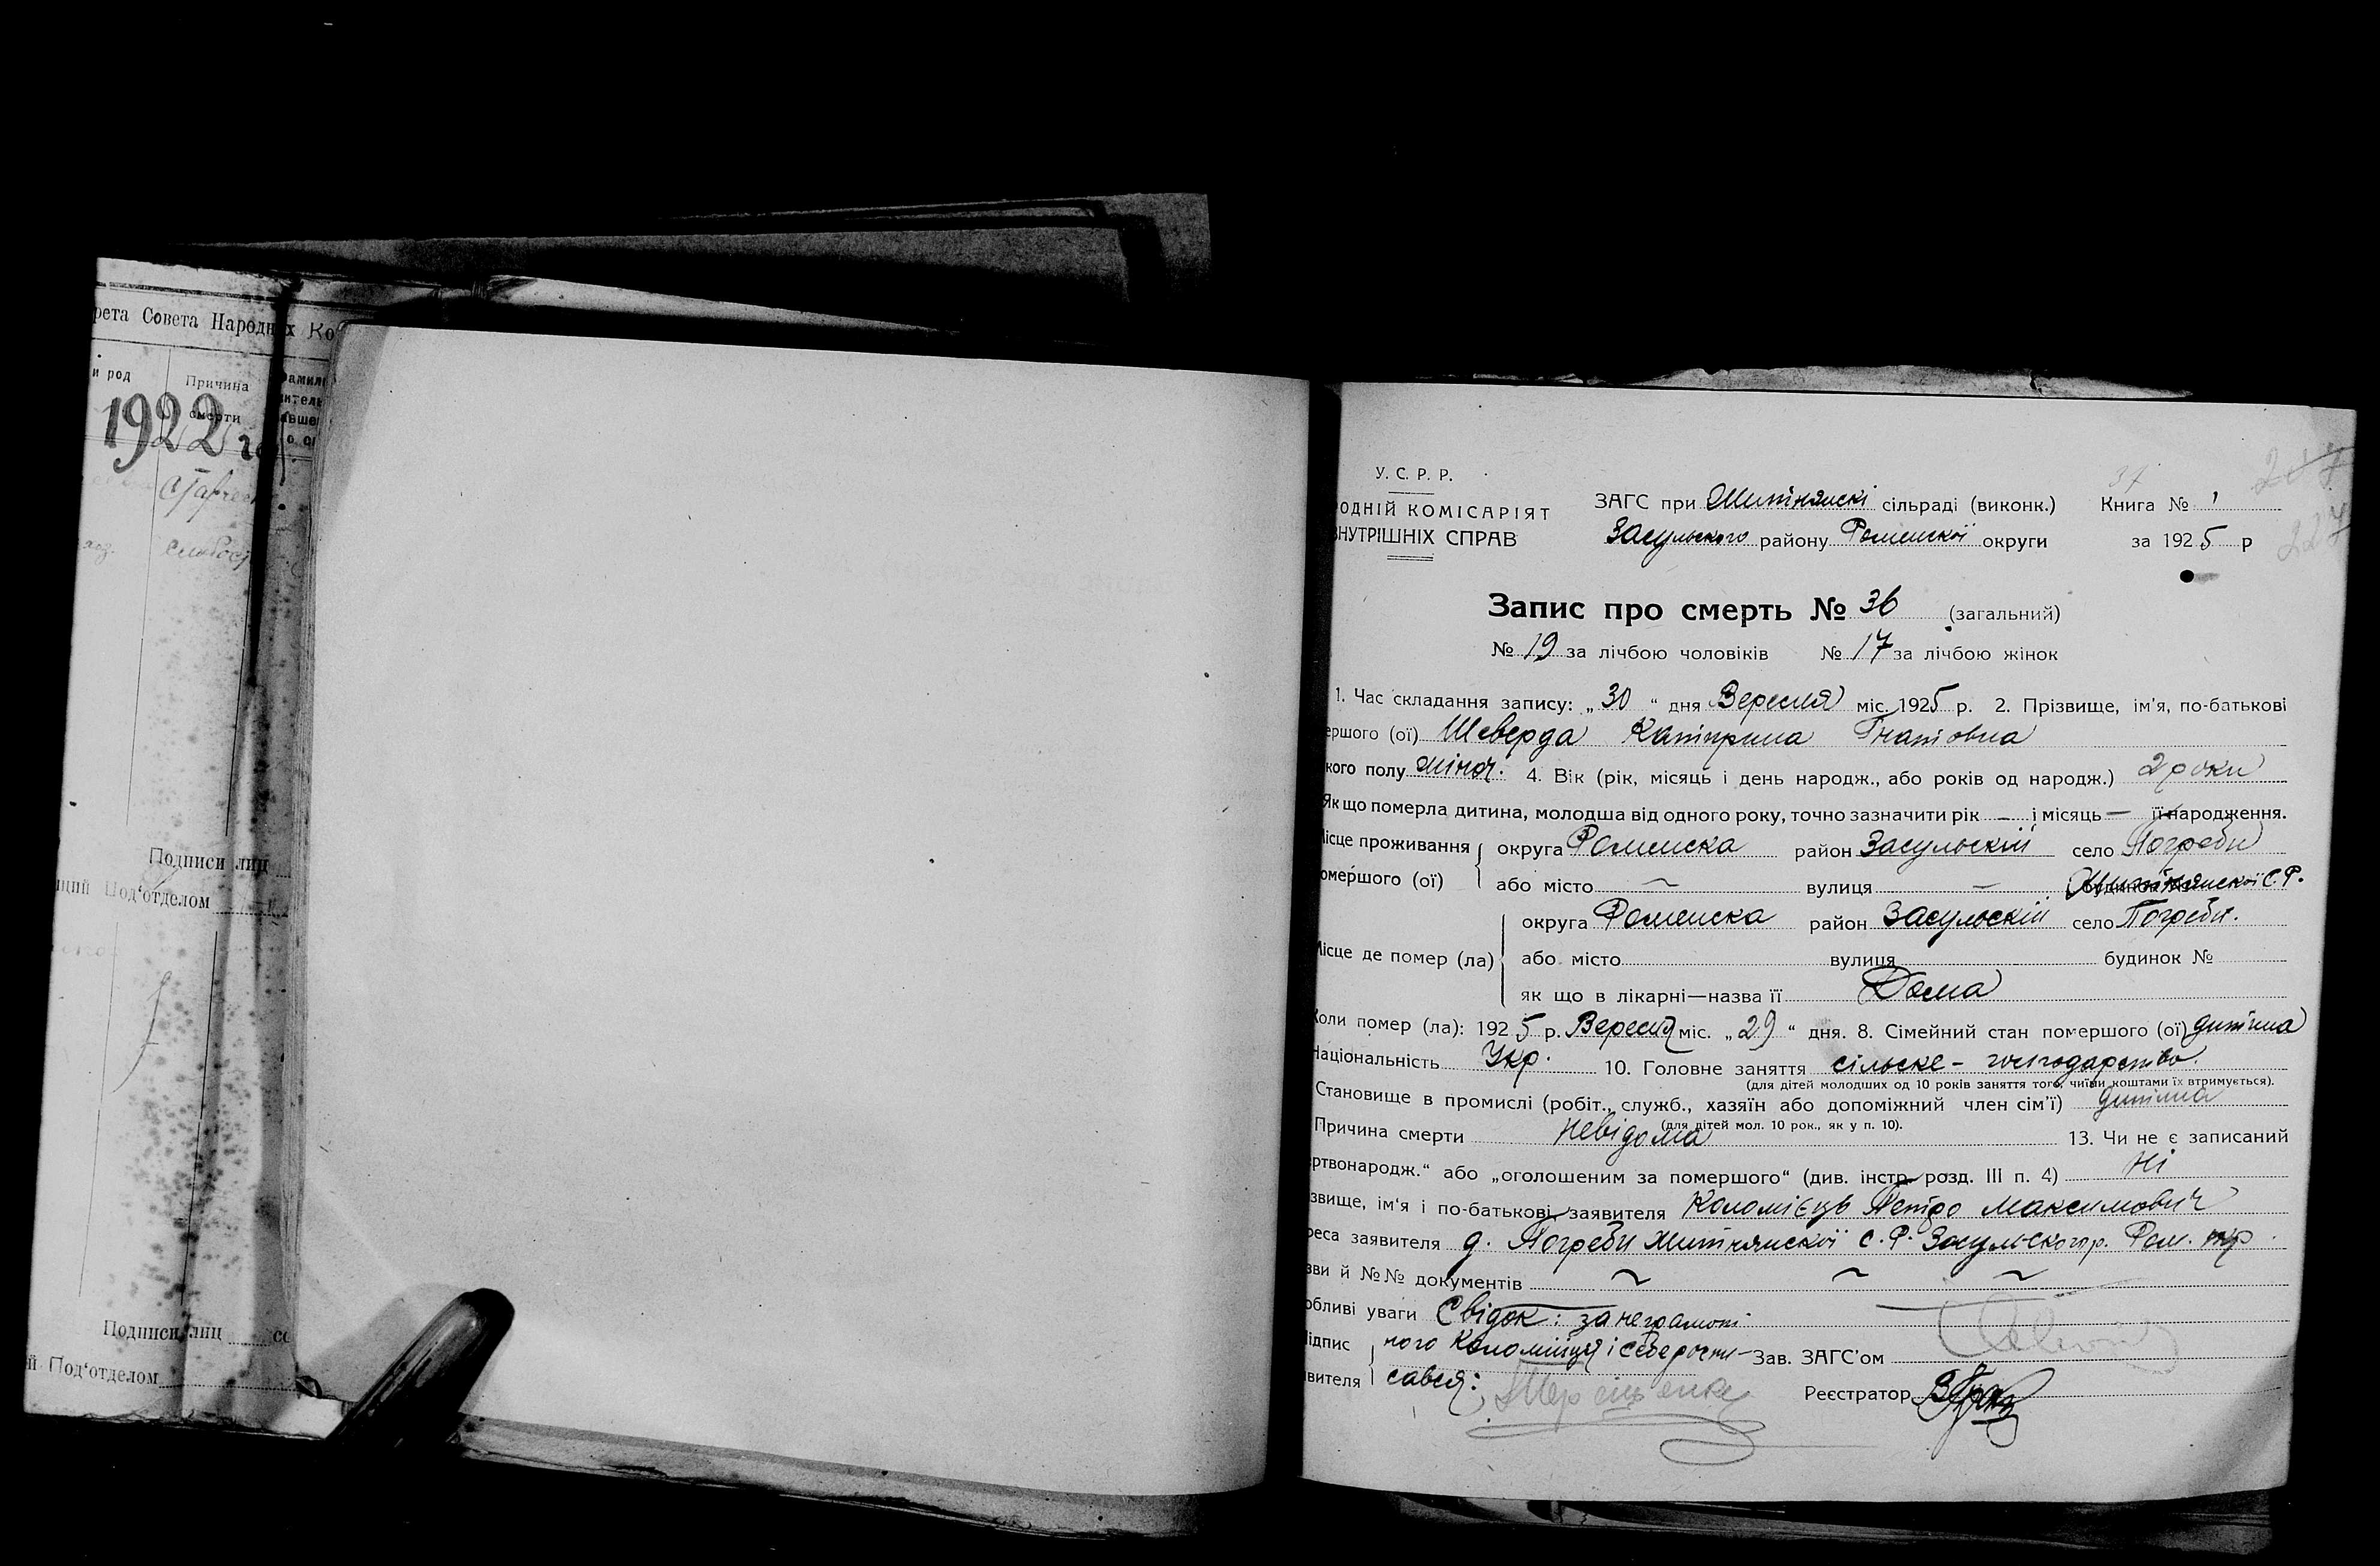 рета Совета Народных Ко
и род
Причина
смерти
1922 го
Подписи лиц
Под‘отделом
Подписи лиц
й Под‘отделом
У. С. Р. Р.
ОДНІЙ КОМІСАРІЯТ
ВНУТРІШНІХ СПРАВ
ЗАГС при сільраді (виконк.)
Засульского району Роменскої округи
37
Книга № 1
за 1925 р
227
Запис про смерть № 36 (загальний)
№ 19 за лічбою чоловіків № 17 за лічбою жінок
1. Час складання запису: „30“ дня Вересня міс. 1925 р. 2. Прізвище, ім’я, по-батькові
ершого (ої) Шеверда Катирина Гнатовна
кого полу жіноч. 4. Вік (рік, місяць і день народж., або років од народж.) 2 роки
Як що померла дитина, молодша від одного року, точно зазначити рік — і місяць — її народження.
ісце проживання округа Роменска район Засульский село Погреби
омершого (ої) або місто ~ вулиця — С. Р.
округа Роменска район Засульский село Погреби.
ісце де помер (ла) або місто вулиця будинок №
як що в лікарні—назва її Дома
оли помер (ла): 1925 р. Вересня міс. „29“ дня. 8. Сімейний стан помершого (ої) дитина
аціональність Укр. 10. Головне заняття сільске - господарство.
(для дітей молодших од 10 років заняття того, чиїми коштами їх втримується).
Становище в промислі (робіт., служб., хазяїн або допоміжний член сім’ї) дитина
(для дітей мол. 10 рок., як у п. 10).
Причина смерти Невідома 13. Чи не є записаний
ертвонародж.“ або „оголошеним за помершого“ (див. інстр. розд. III п. 4) Ні
звище, ім‘я і по-батькові заявителя Коломієць Петро Максимович
реса заявителя д. Погреби С. Р. Засульского р. Ром. окр.
зви й №№ документів ~ ~ ~
обливі уваги Свідок: за неграмот-
ідпис ного Коломійця і себе роспи- Зав. ЗАГС’ом
вителя сався: Реєстратор